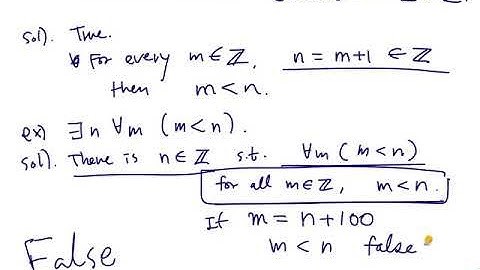 sol). True.
For every m∈ℤ, n = m+1 ∈ ℤ
then m<n.
ex) ∃n ∀m (m<n).
sol). There is n∈ℤ s.t. ∀m (m<n)
for all m∈ℤ, m<n.
If m = n+100
m<n false
False